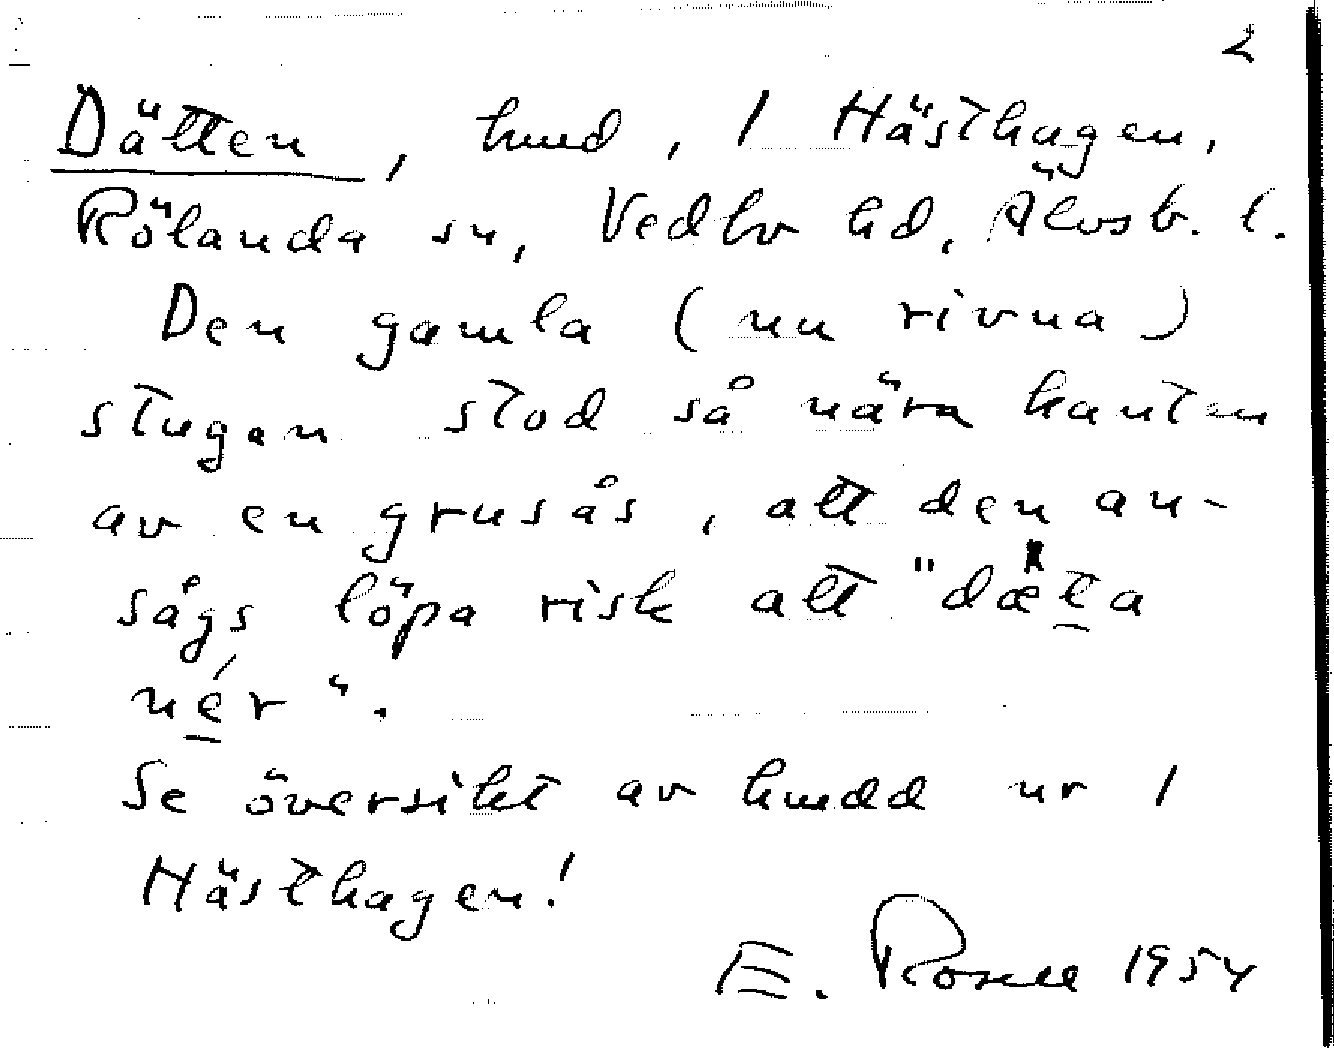 2
Dätten, hmd, 1 Hästhagen,
Rölanda sn, Vedbo hd, Älvsb. l.
Den gamla (nu rivna)
stugan stod så nära kanten
av en grusås, att den an-
sågs löpa risk att "dæta
nér".
Se översikt av hmdd nr 1
Hästhagen!
E. Rosell 1954